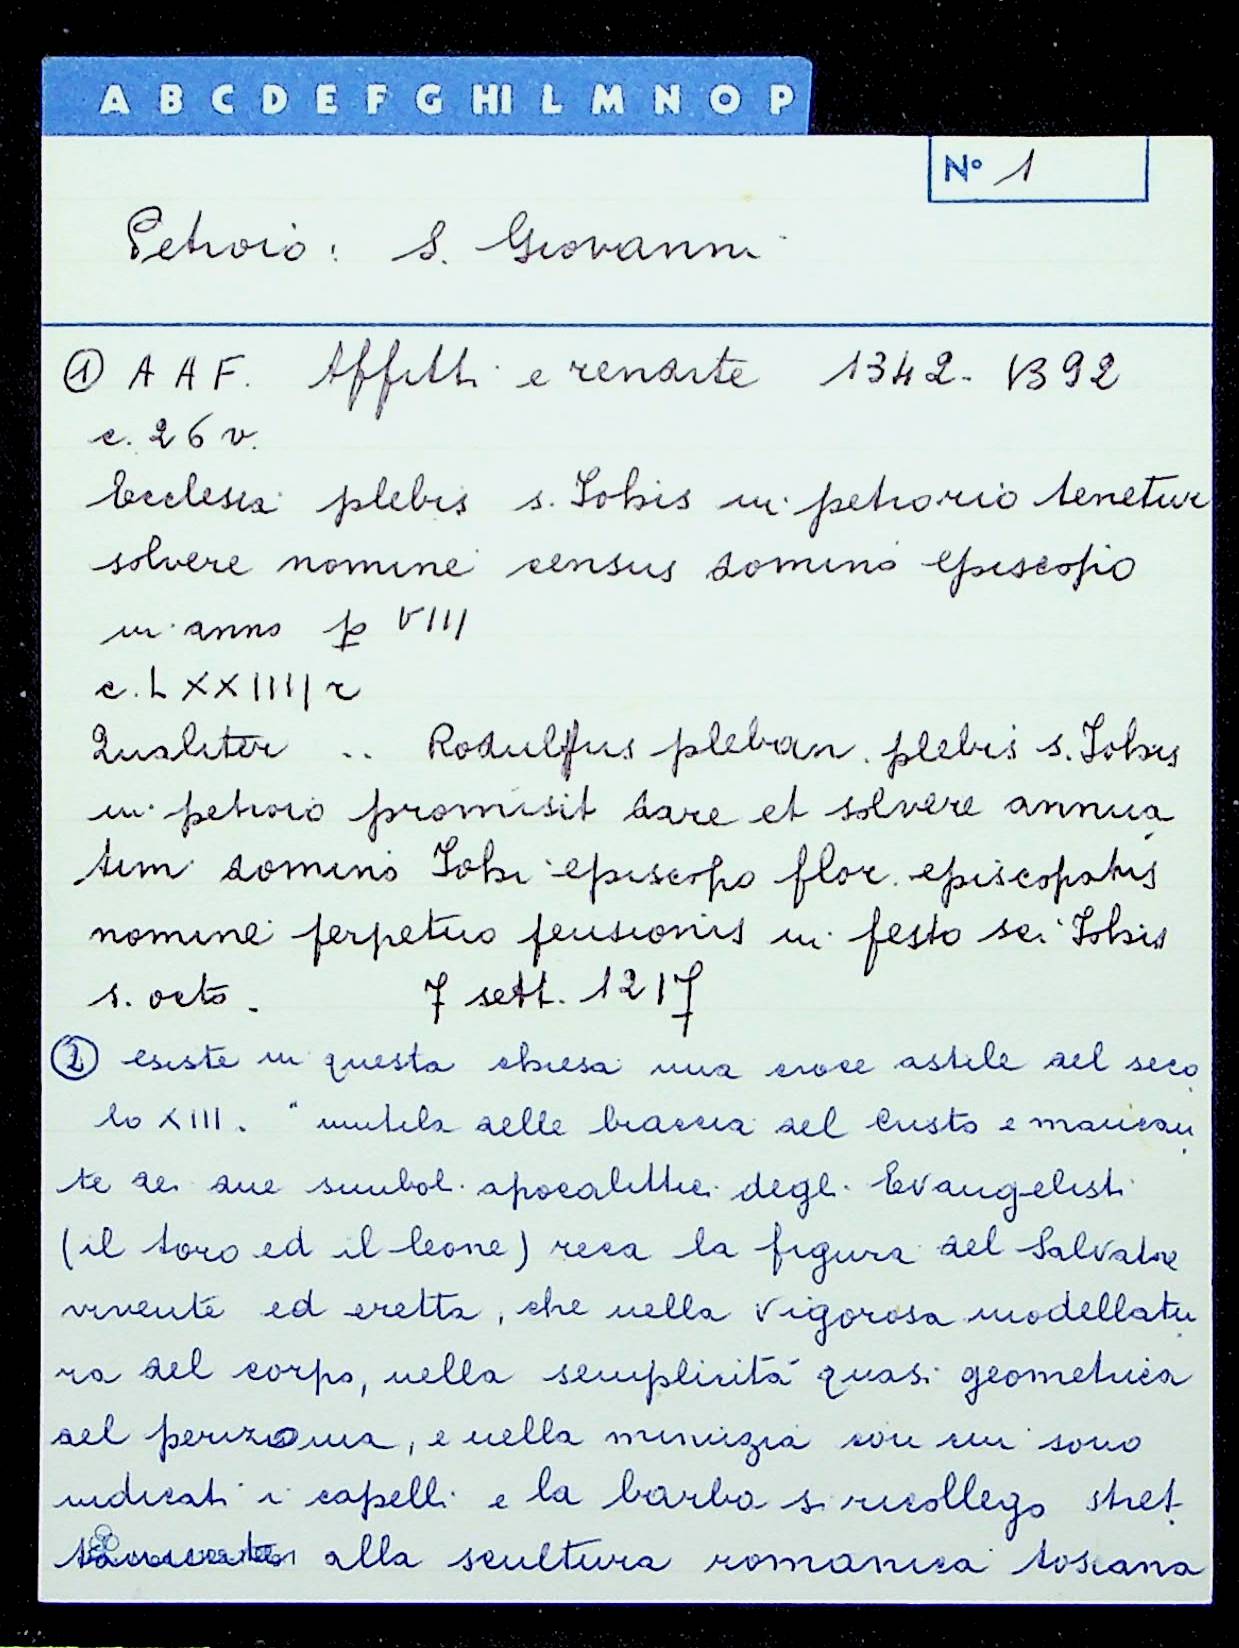 A B C D E F G HI L M N O P
N° 1
Petroio: S. Giovanni
① A A F. Affitti e rendite 1342-1392
c. 26 v.
Ecclesia plebis s. Johis in petrorio tenetur
solvere nomine census domino episcopio
in anno VIII
c. LXXIIII r
Qualiter .. Rodulfus pleban. plebis s. Johis
in petroio promisit dare et solvere annua
tim domino Johi episcopo flor. episcopatus
nomine perpetuo pensionis in festo sci Johis
s. octo. 7 sett. 1217
② esiste in questa chiesa una croce astile del seco
lo XIII. "mutila delle braccia del Cristo e mancan
te dei due simboli apocalittici degli Evangelisti
(il toro ed il leone) reca la figura del Salvatore
vivente ed eretta, che nella vigorosa modellatu
ra del corpo, nella semplicità quasi geometrica
del perizoma, e nella minuzia con cui sono
indicati i capelli e la barba si ricollega stret
tamente alla scultura romanica toscana